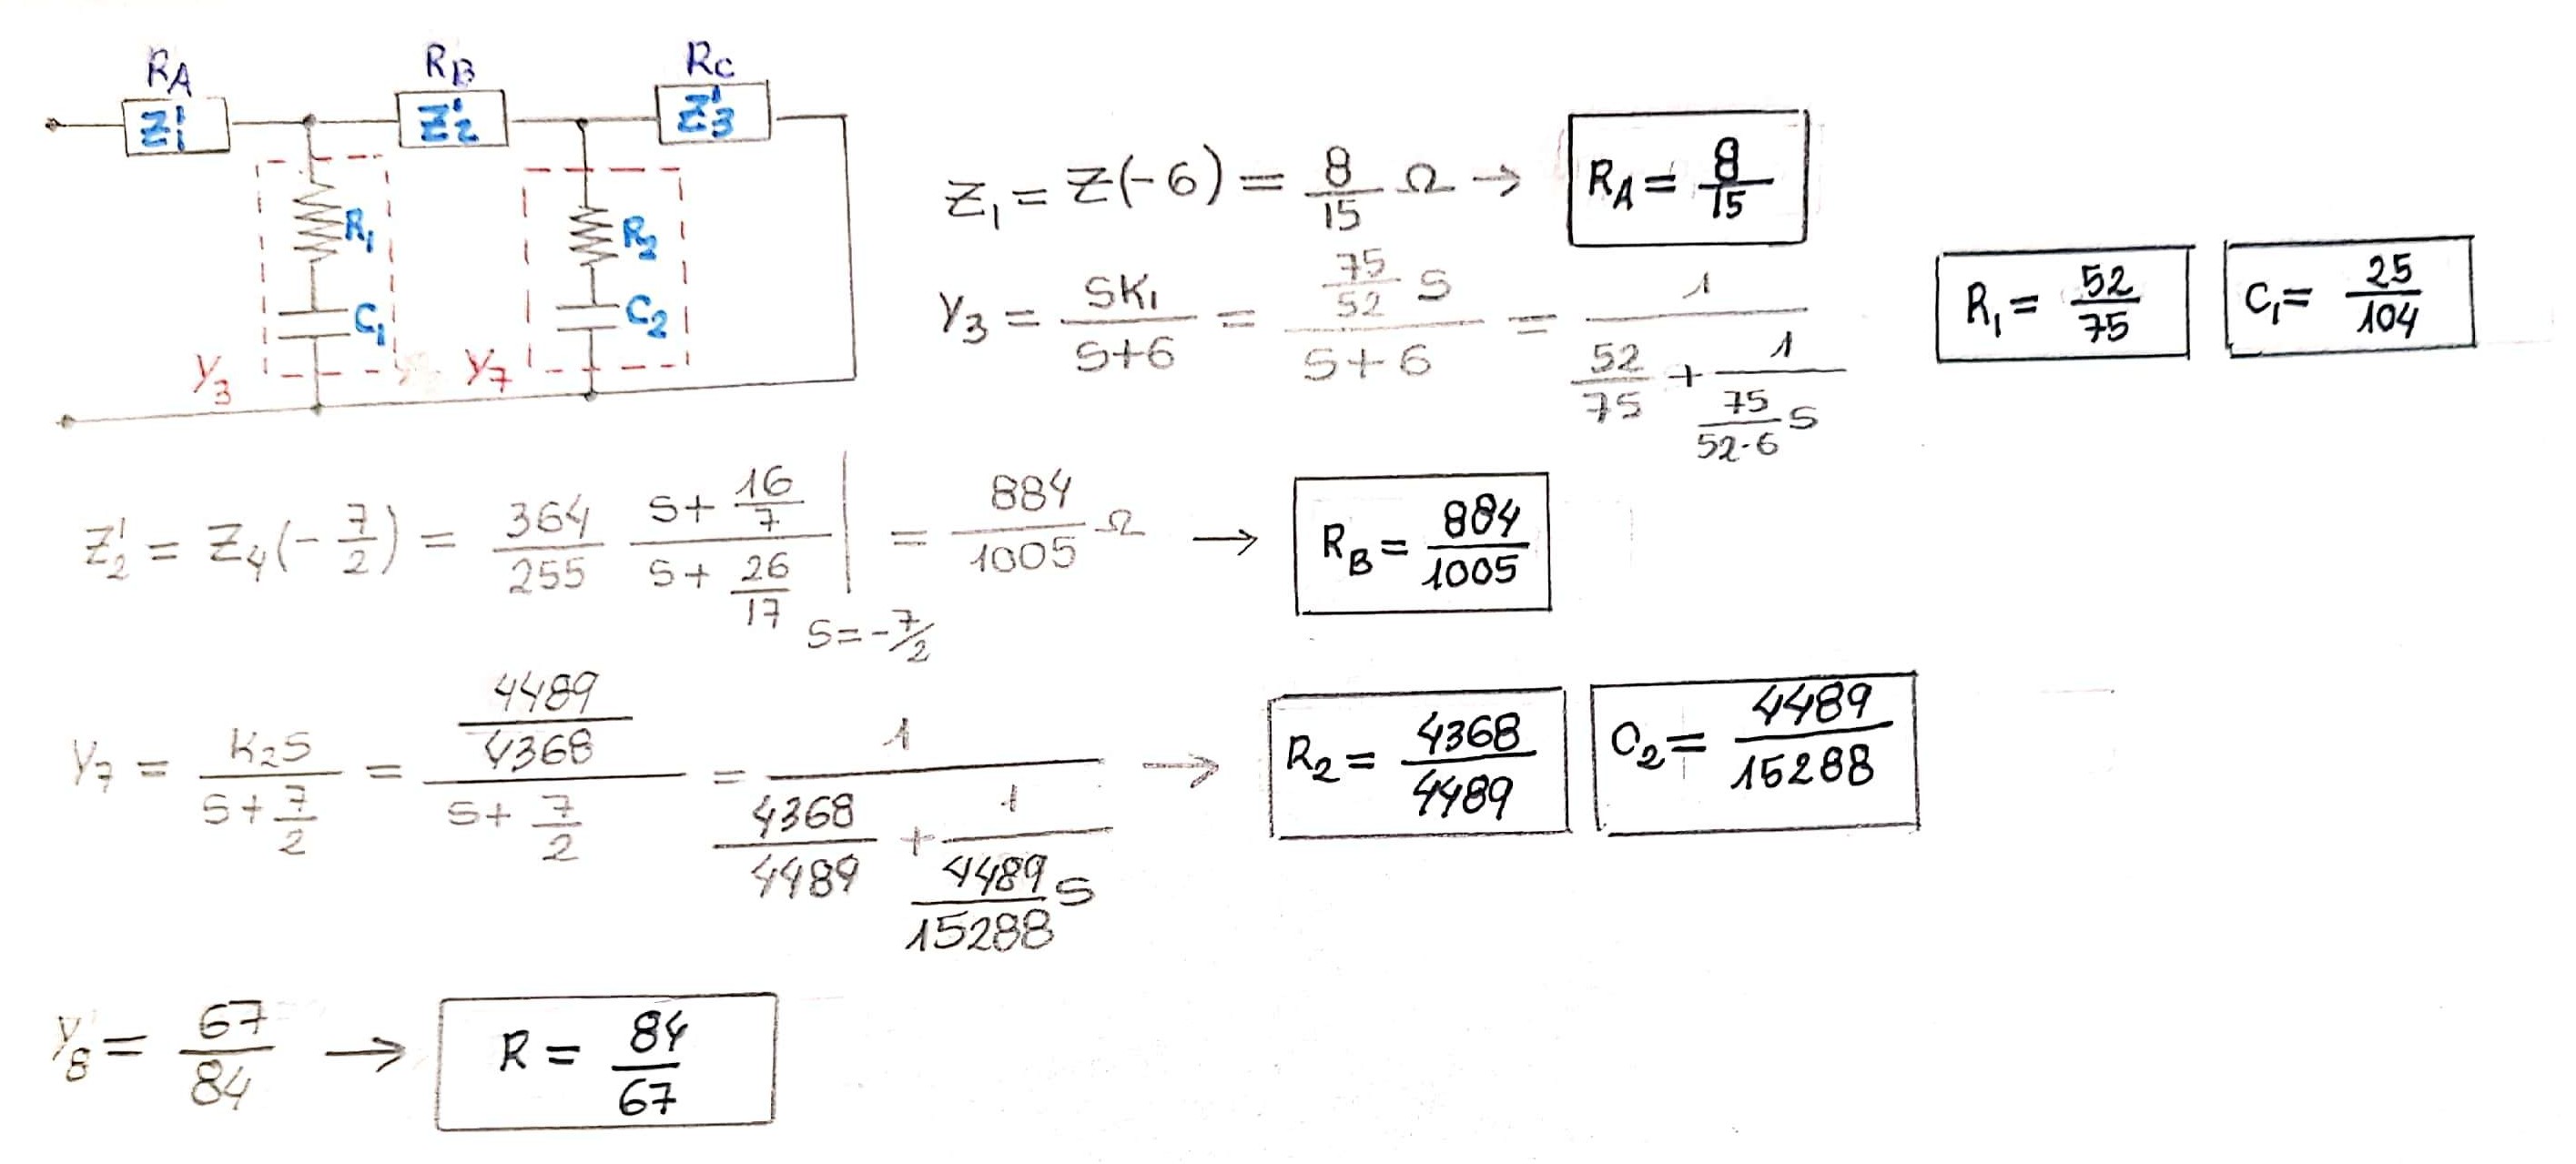 RA RB RC
Z'1 Z'2 Z'3
R1 R2
C1 C2
Y3 Y7
Z1 = Z(-6) = 8/15 Ω → RA = 8/15
Y3 = SK1/(S+6) = (75/52 S)/(S+6) = 1/(52/75 + 1/(75/(52·6) S)) R1 = 52/75 C1 = 25/104
Z'2 = Z4(-7/2) = 364/255 (S+16/7)/(S+26/17) | S=-7/2 = 884/1005 Ω → RB = 884/1005
Y7 = K2S/(S+7/2) = (4489/4368)/(S+7/2) = 1/(4368/4489 + 1/(4489/15288 S)) → R2 = 4368/4489 C2 = 4489/15288
Y8 = 67/84 → R = 84/67